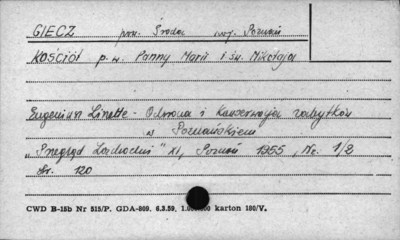 GIECZ pow. Środa woj. Poznań
KOŚCIÓŁ p.w. Panny Marii i św. Mikołaja
Eugeniusz Linette - Odnowa i Konserwacja zabytków
w Poznańskiem
„Przegląd Zachodni" XI, Poznań 1955, Nr. 1/2
str. 120
CWD B-15b Nr 515/P. GDA-809. 6.3.59. karton 160/V.